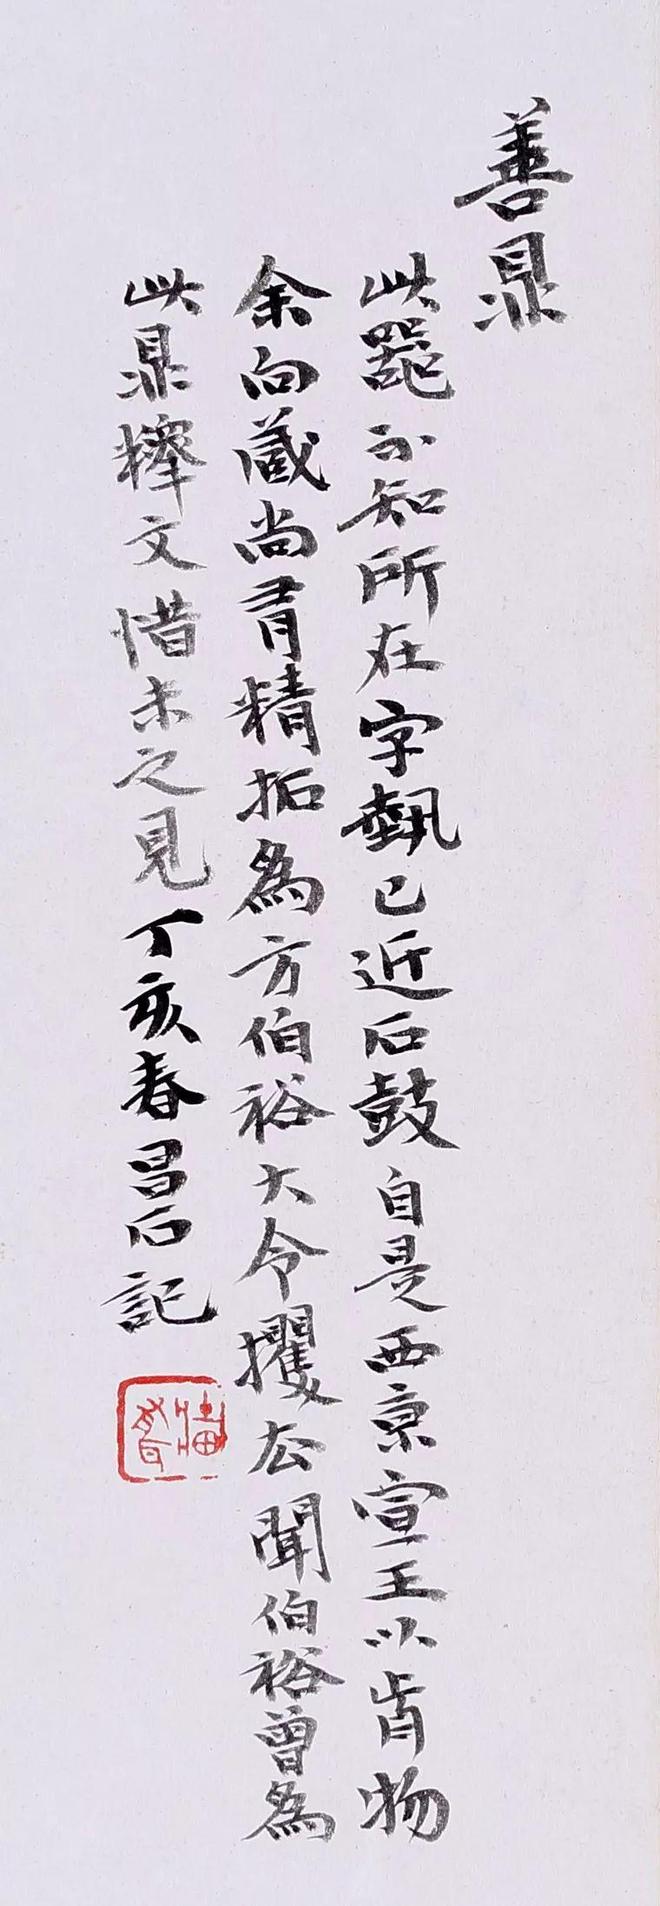 善鼎
此器不知所在字埶已近石鼓自是西京宣王以歬物
余向藏尚有精拓為方伯裕大令攫去聞伯裕曾為
此鼎釋文惜未之見丁亥春昌石記